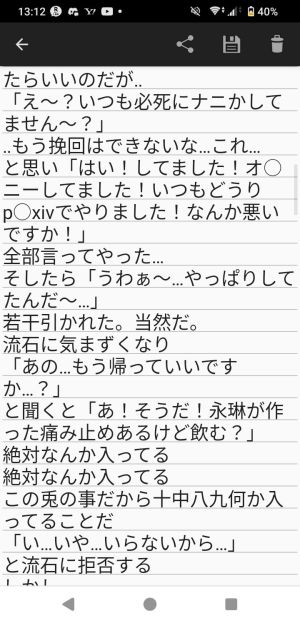 13:12
40%
たらいいのだが..
「え〜？いつも必死にナニかして
ません〜？」
..もう挽回はできないな...これ...
と思い「はい！してました！オ〇
ニーしてました！いつもどうり
p〇xivでやりました！なんか悪い
ですか！」
全部言ってやった...
そしたら「うわぁ〜...やっぱりして
たんだ〜...」
若干引かれた。当然だ。
流石に気まずくなり
「あの...もう帰っていいです
か...？」
と聞くと「あ！そうだ！永琳が作
った痛み止めあるけど飲む？」
絶対なんか入ってる
絶対なんか入ってる
この兎の事だから十中八九何か入
ってることだ
「い...いや...いらないから...」
と流石に拒否する
しかし